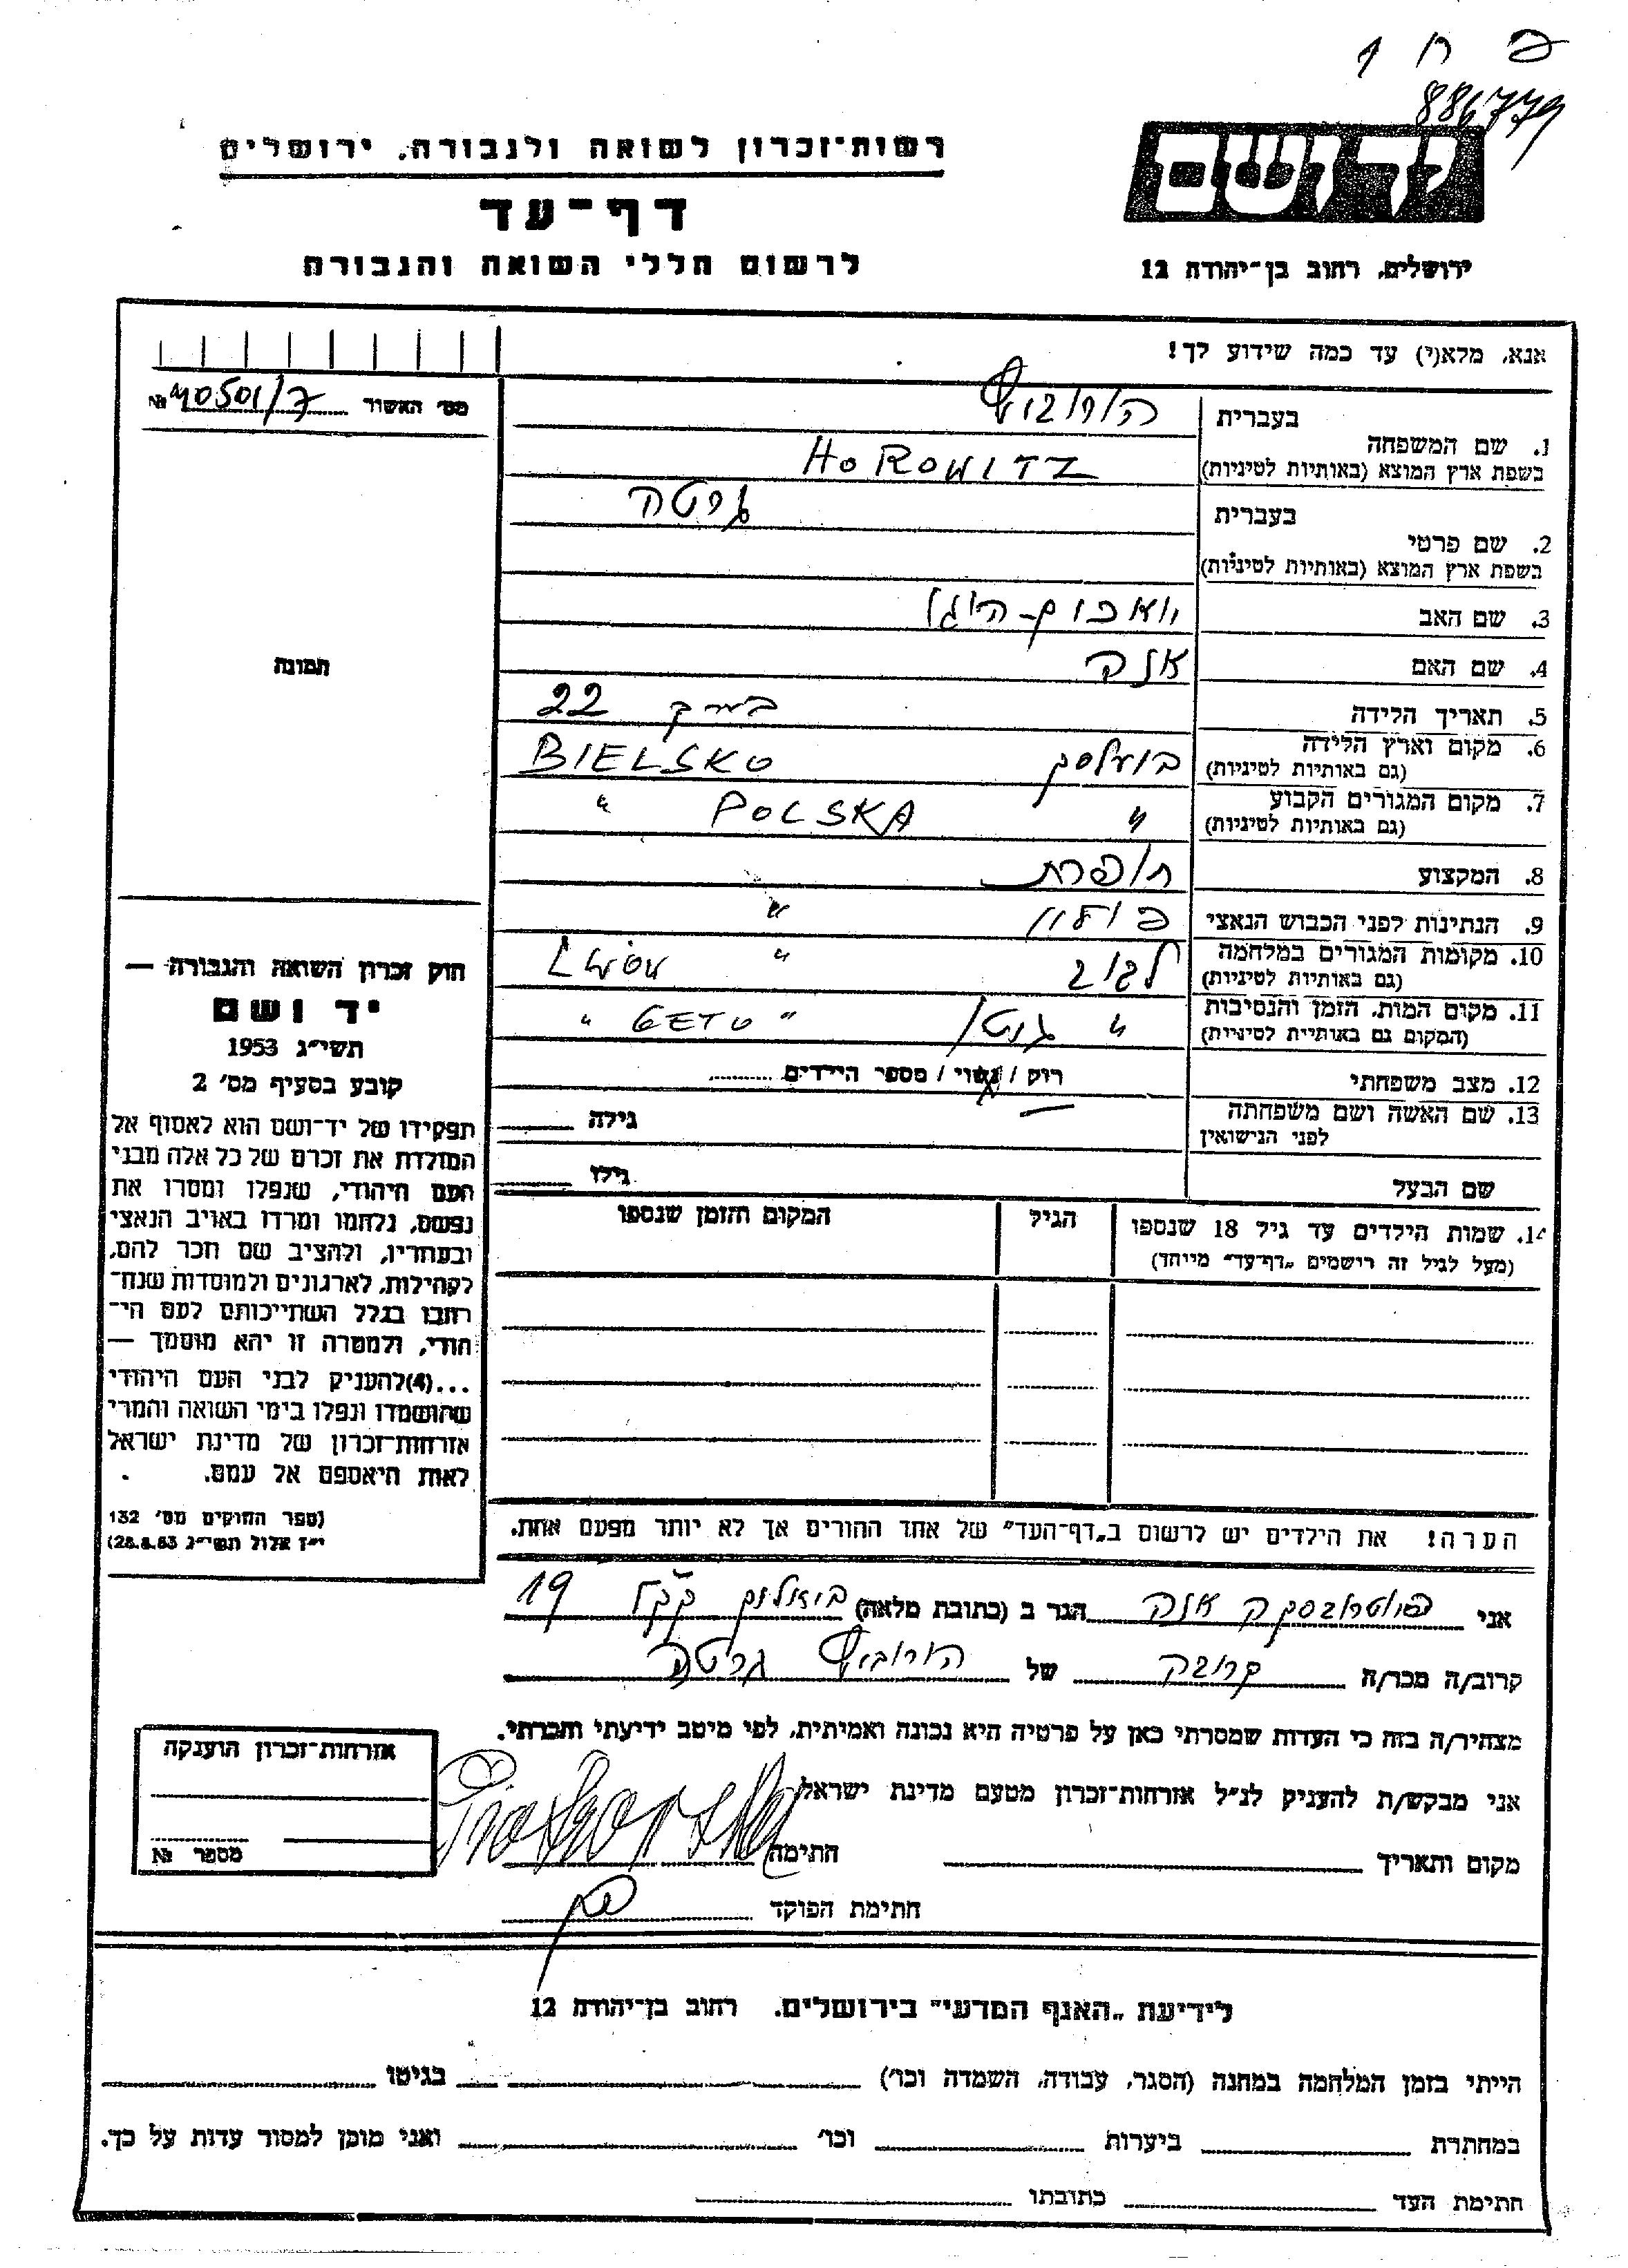 פ ח 1
886779
יד ושם
ירושלים, רחוב בן־יהודה 12
רשות־זכרון לשואה ולגבורה, ירושלים
דף־עד
לרשום חללי השואה והגבורה
אנא, מלא(י) עד כמה שידוע לך!
מס׳ האשור 40501/7 №
תמונה
1. שם המשפחה
בעברית הורוביץ
בשפת ארץ המוצא (באותיות לטיניות) HOROWITZ
2. שם פרטי
בעברית גרטה
בשפת ארץ המוצא (באותיות לטיניות)
3. שם האב
4. שם האם אנה
5. תאריך הלידה 22
6. מקום וארץ הלידה
(גם באותיות לטיניות) BIELSKO
7. מקום המגורים הקבוע
(גם באותיות לטיניות) " POLSKA "
8. המקצוע תופרת
9. הנתינות לפני הכבוש הנאצי פולין "
10. מקומות המגורים במלחמה
(גם באותיות לטיניות) לבוב " LWÓW
11. מקום המות, הזמן והנסיבות
(המקום גם באותיית לטיניית) " גטו " GETO "
12. מצב משפחתי רוק / נשוי / מספר הילדים
13. שם האשה ושם משפחתה
לפני הנישואין גילה
שם הבעל גילו
14. שמות הילדים עד גיל 18 שנספו
(מעל לגיל זה רישמים „דף־עד" מייחד)
הגיל
המקום והזמן שנספו
הערה! את הילדים יש לרשום ב„דף־העד" של אחד ההורים אך לא יותר מפעם אחת.
חוק זכרון השואה והגבורה —
יד ושם
תשי״ג 1953
קובע בסעיף מס׳ 2
תפקידו של יד־ושם הוא לאסוף אל
המולדת את זכרם של כל אלה מבני
העם היהודי, שנפלו ומסרו את
נפשם, נלחמו ומרדו באויב הנאצי
ובעוזריו, ולהציב שם וזכר להם,
לקהילות, לארגונים ולמוסדות שנח־
רבו בגלל השתייכותם לעם הי־
הודי, ולמטרה זו יהא מוסמך —
...(4) להעניק לבני העם היהודי
שהושמדו ונפלו בימי השואה והמרי
אזרחות־זכרון של מדינת ישראל
לאות היאספם אל עמם.
(ספר החוקים מס׳ 132
י״ז אלול תשי״ג 28.8.53)
אני פיוטרובסקה אנה הגר ב (כתובת מלאה) 19
קרוב/ה מכר/ה קרובה של הורוביץ גרטה
מצהיר/ה בזה כי העדות שמסרתי כאן על פרטיה היא נכונה ואמיתית, לפי מיטב ידיעתי והכרתי.
אני מבקש/ת להעניק לנ״ל אזרחות־זכרון מטעם מדינת ישראל
מקום ותאריך חתימה Piotrowska
חתימת הפוקד
אזרחות־זכרון הוענקה
מספר №
לידיעת „האגף המדעי" בירושלים. רחוב בן־יהודה 12
הייתי בזמן המלחמה במחנה (הסגר, עבודה, השמדה וכו׳) בגיטו
במחתרת ביערות וכו׳ ואני מוכן למסור עדות על כך.
חתימת העד כתובתו